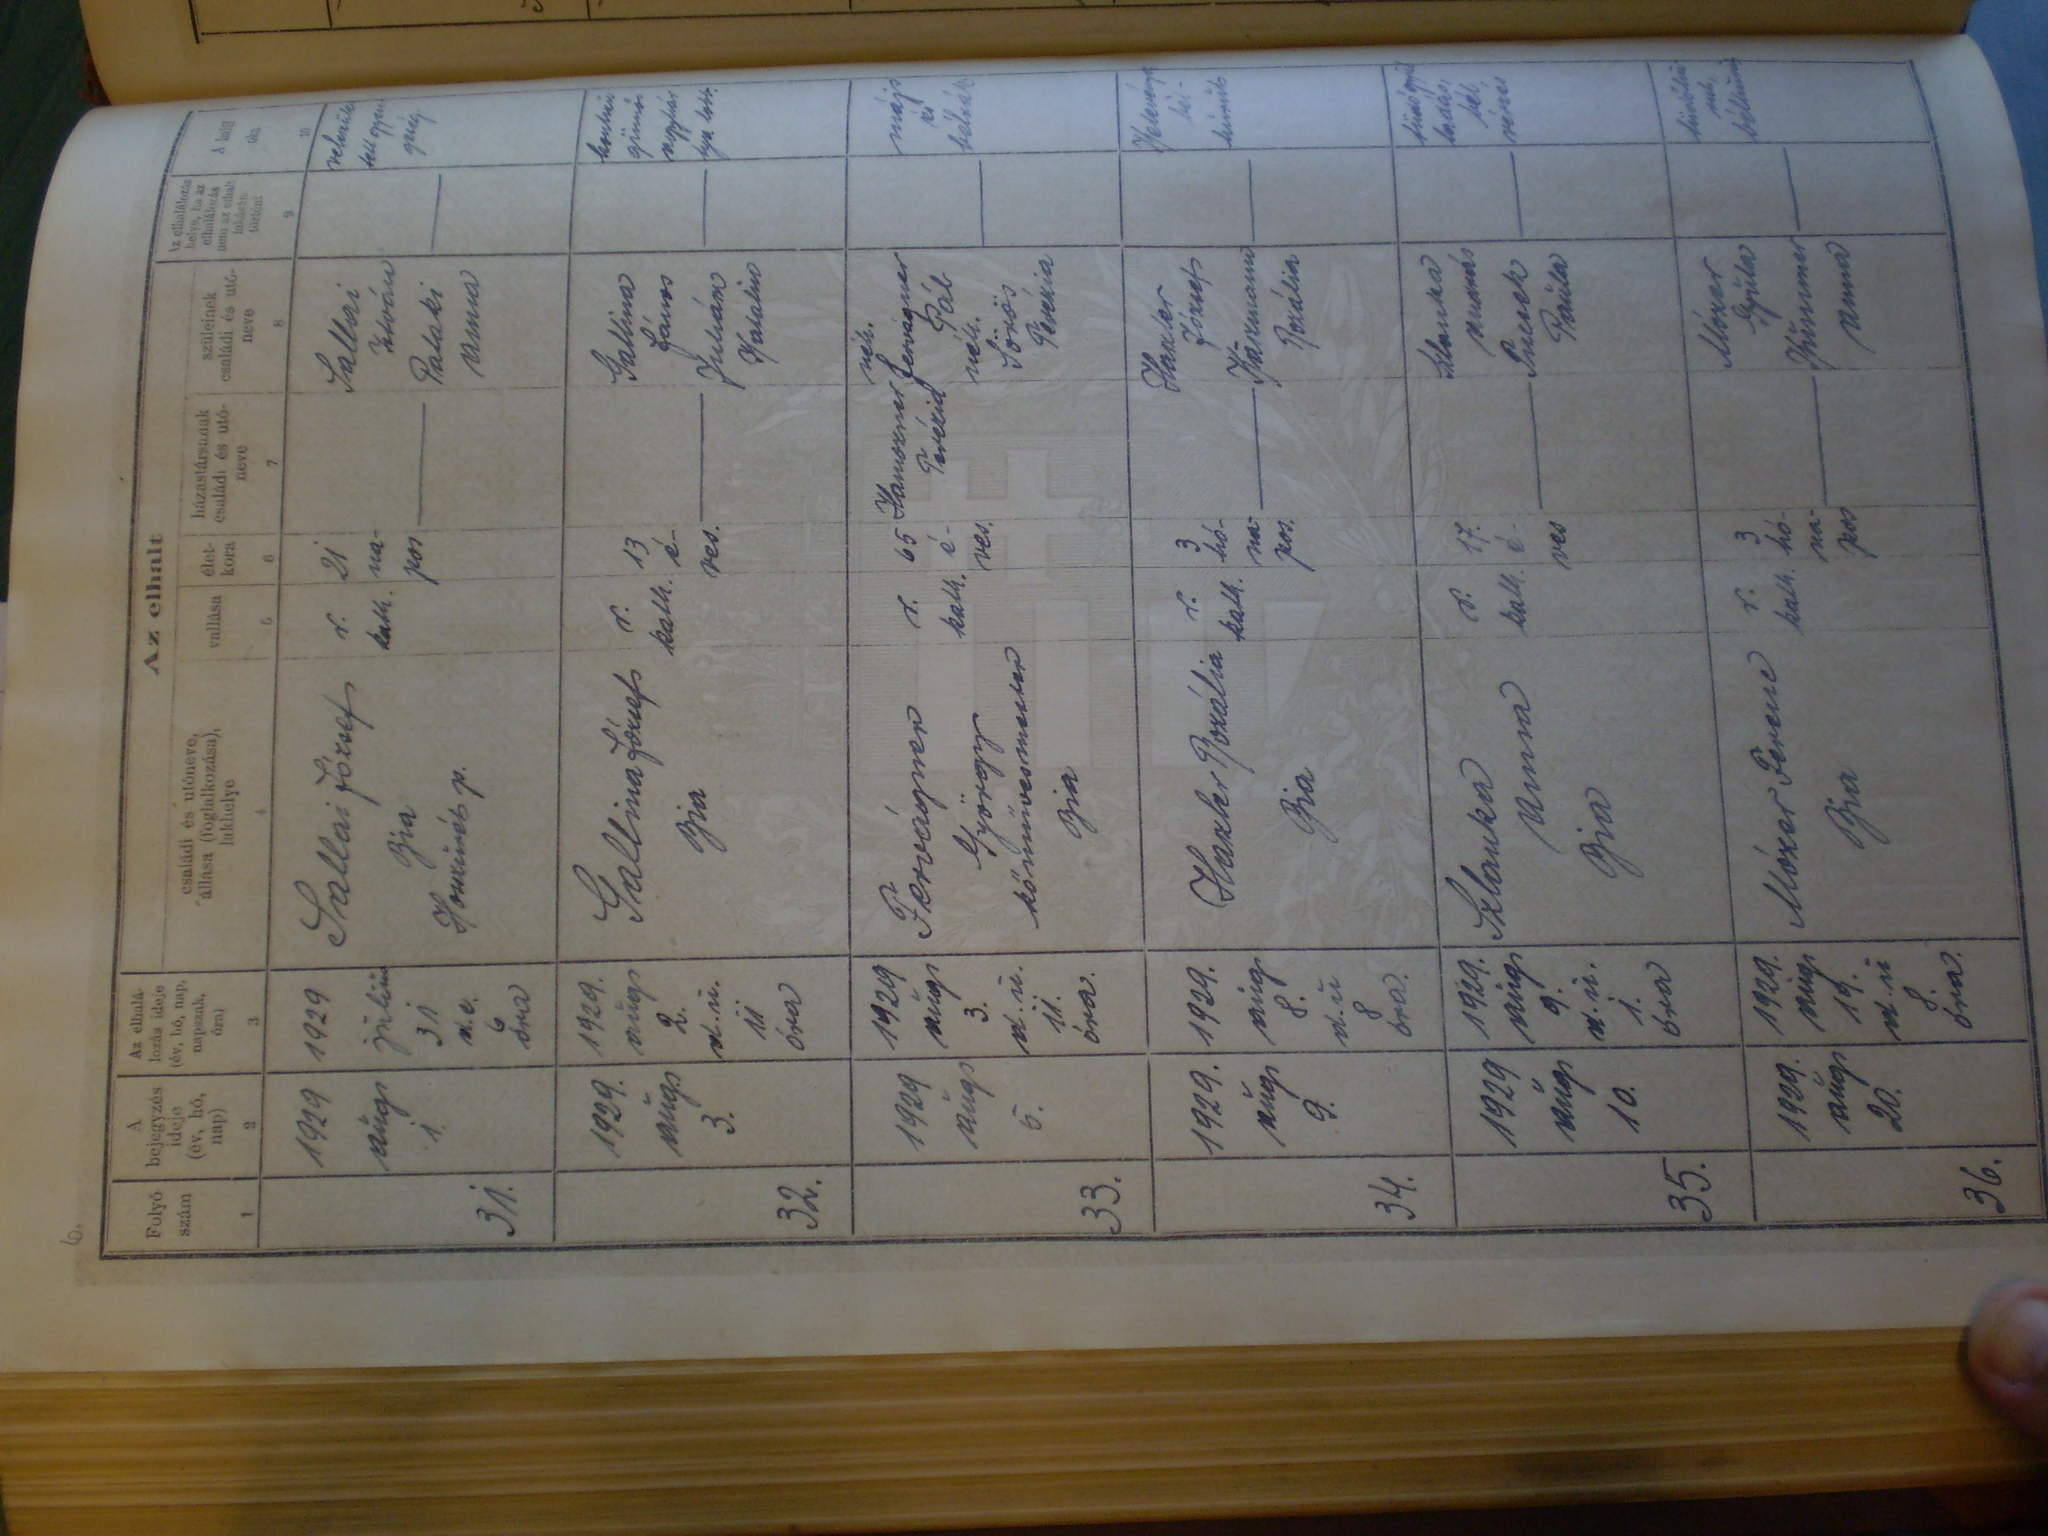 6.
Az elhalt
Folyó
szám
A
bejegyzés
ideje
(év, hó,
nap)
Az elhalá-
lozás ideje
(év, hó, nap,
napszak,
óra)
családi és utóneve,
állása (foglalkozása),
lakhelye
vallása
élet-
kora
házastársának
családi és utó-
neve
szüleinek
családi és utó-
neve
Az elhalálozás
helye, ha az
elhalálozás
nem az elhalt
lakásán
történt
A halál
oka
1
2
3
4
5
6
7
8
9
10
31.
1929
aug
1.
1929
július
31
d. e.
6
óra
Szallai József
Bia
r.
kath.
21
na-
pos
Szallai
István
Pataki
Anna
velszületett
gyen
geség
32.
1929.
aug
3.
1929.
aug
2.
d. u.
11
óra
Gallina József
Bia
r.
kath.
13
é-
ves.
Galina
János
Juhász
Katalin
33.
1929
aug
5.
1929
aug
3.
d. u.
11.
óra.
Fervágner
György
kőművesmester
Bia
r.
kath.
65
é-
ves.
Terézia
néh.
Fervágner
Pál
néh.
Sörös
Terézia
máj
és
bélrák
34.
1929.
aug
9.
1929.
aug
8.
d. u
8
óra.
Haxler Rozália
Bia
r.
kath.
3
hó-
na-
pos.
Haxler
József
Rozália
35.
1929
aug
10.
1929.
aug
9.
d. u.
1.
óra
Szlanka
Anna
Bia
r.
kath.
17.
é-
ves
Szlanka
Paula
36.
1929.
aug
20.
1929.
aug
19.
d. u
8
óra.
Mószer Ferenc
Bia
r.
kath.
3
hó-
na-
pos
Mószer
Gyula
Anna